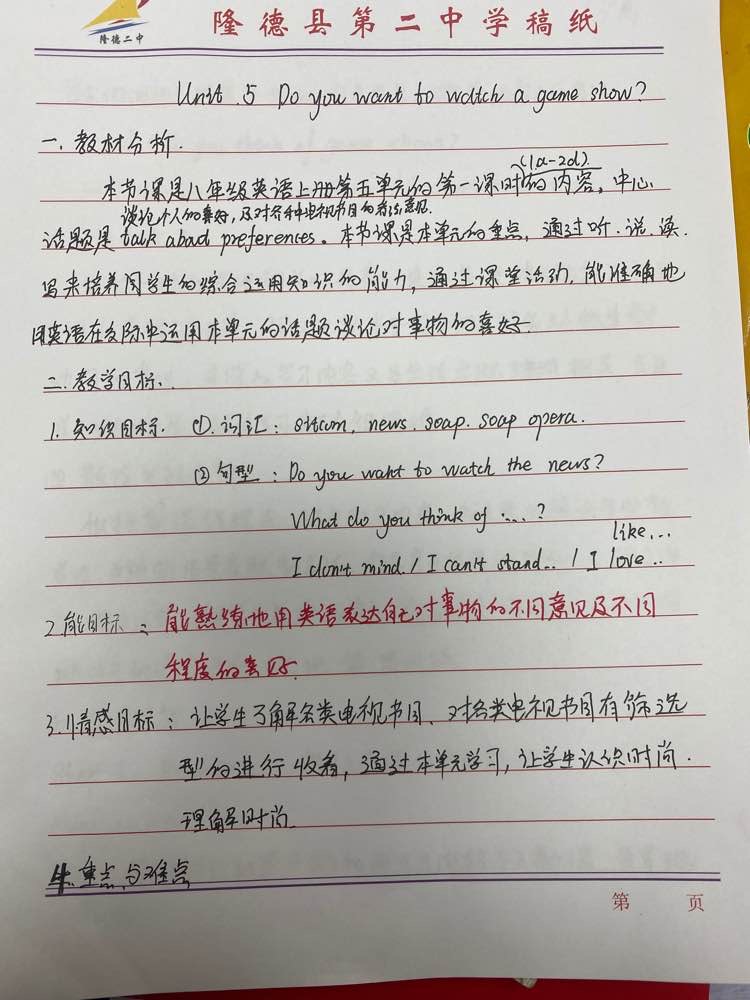 隆德二中
隆德县第二中学稿纸
Unit 5 Do you want to watch a game show?
一.教材分析.
(1a-2d)
本节课是八年级英语上册第五单元的第一课时的内容,中心
谈论个人的喜好,及对各种电视节目的看法意见.
话题是 talk about preferences。本节课是本单元的重点,通过听.说.读.
写来培养同学生的综合运用知识的能力,通过课堂活动,能准确地
用英语在交际中运用本单元的话题谈论对事物的喜好.
二.教学目标.
1.知识目标. ①.词汇: sitcom, news. soap. soap opera.
②句型: Do you want to watch the news?
What do you think of ....?
like...
I don't mind. / I can't stand... / I love ..
2.能目标: 能熟练地用英语表达自己对事物的不同意见及不同
程度的喜好.
3.情感目标: 让学生了解各类电视节目、对各类电视节目有筛选
型的进行收看,通过本单元学习,让学生认识时尚.
理解时尚.
4.重点与难点
第 页